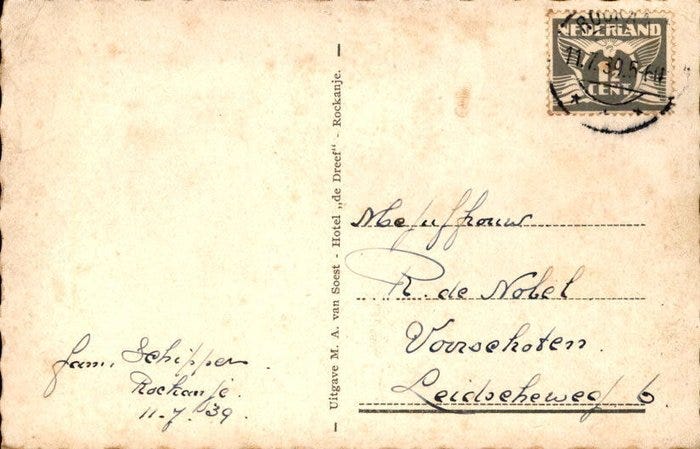 NEDERLAND
11.7.39.
CENT
Uitgave M. A. van Soest - Hotel „de Dreef" - Rockanje.
Mejuffrouw
R. de Nobel
Voorschoten.
Leidscheweg 6.
fam. Schipper.
Rockanje.
11-7 '39